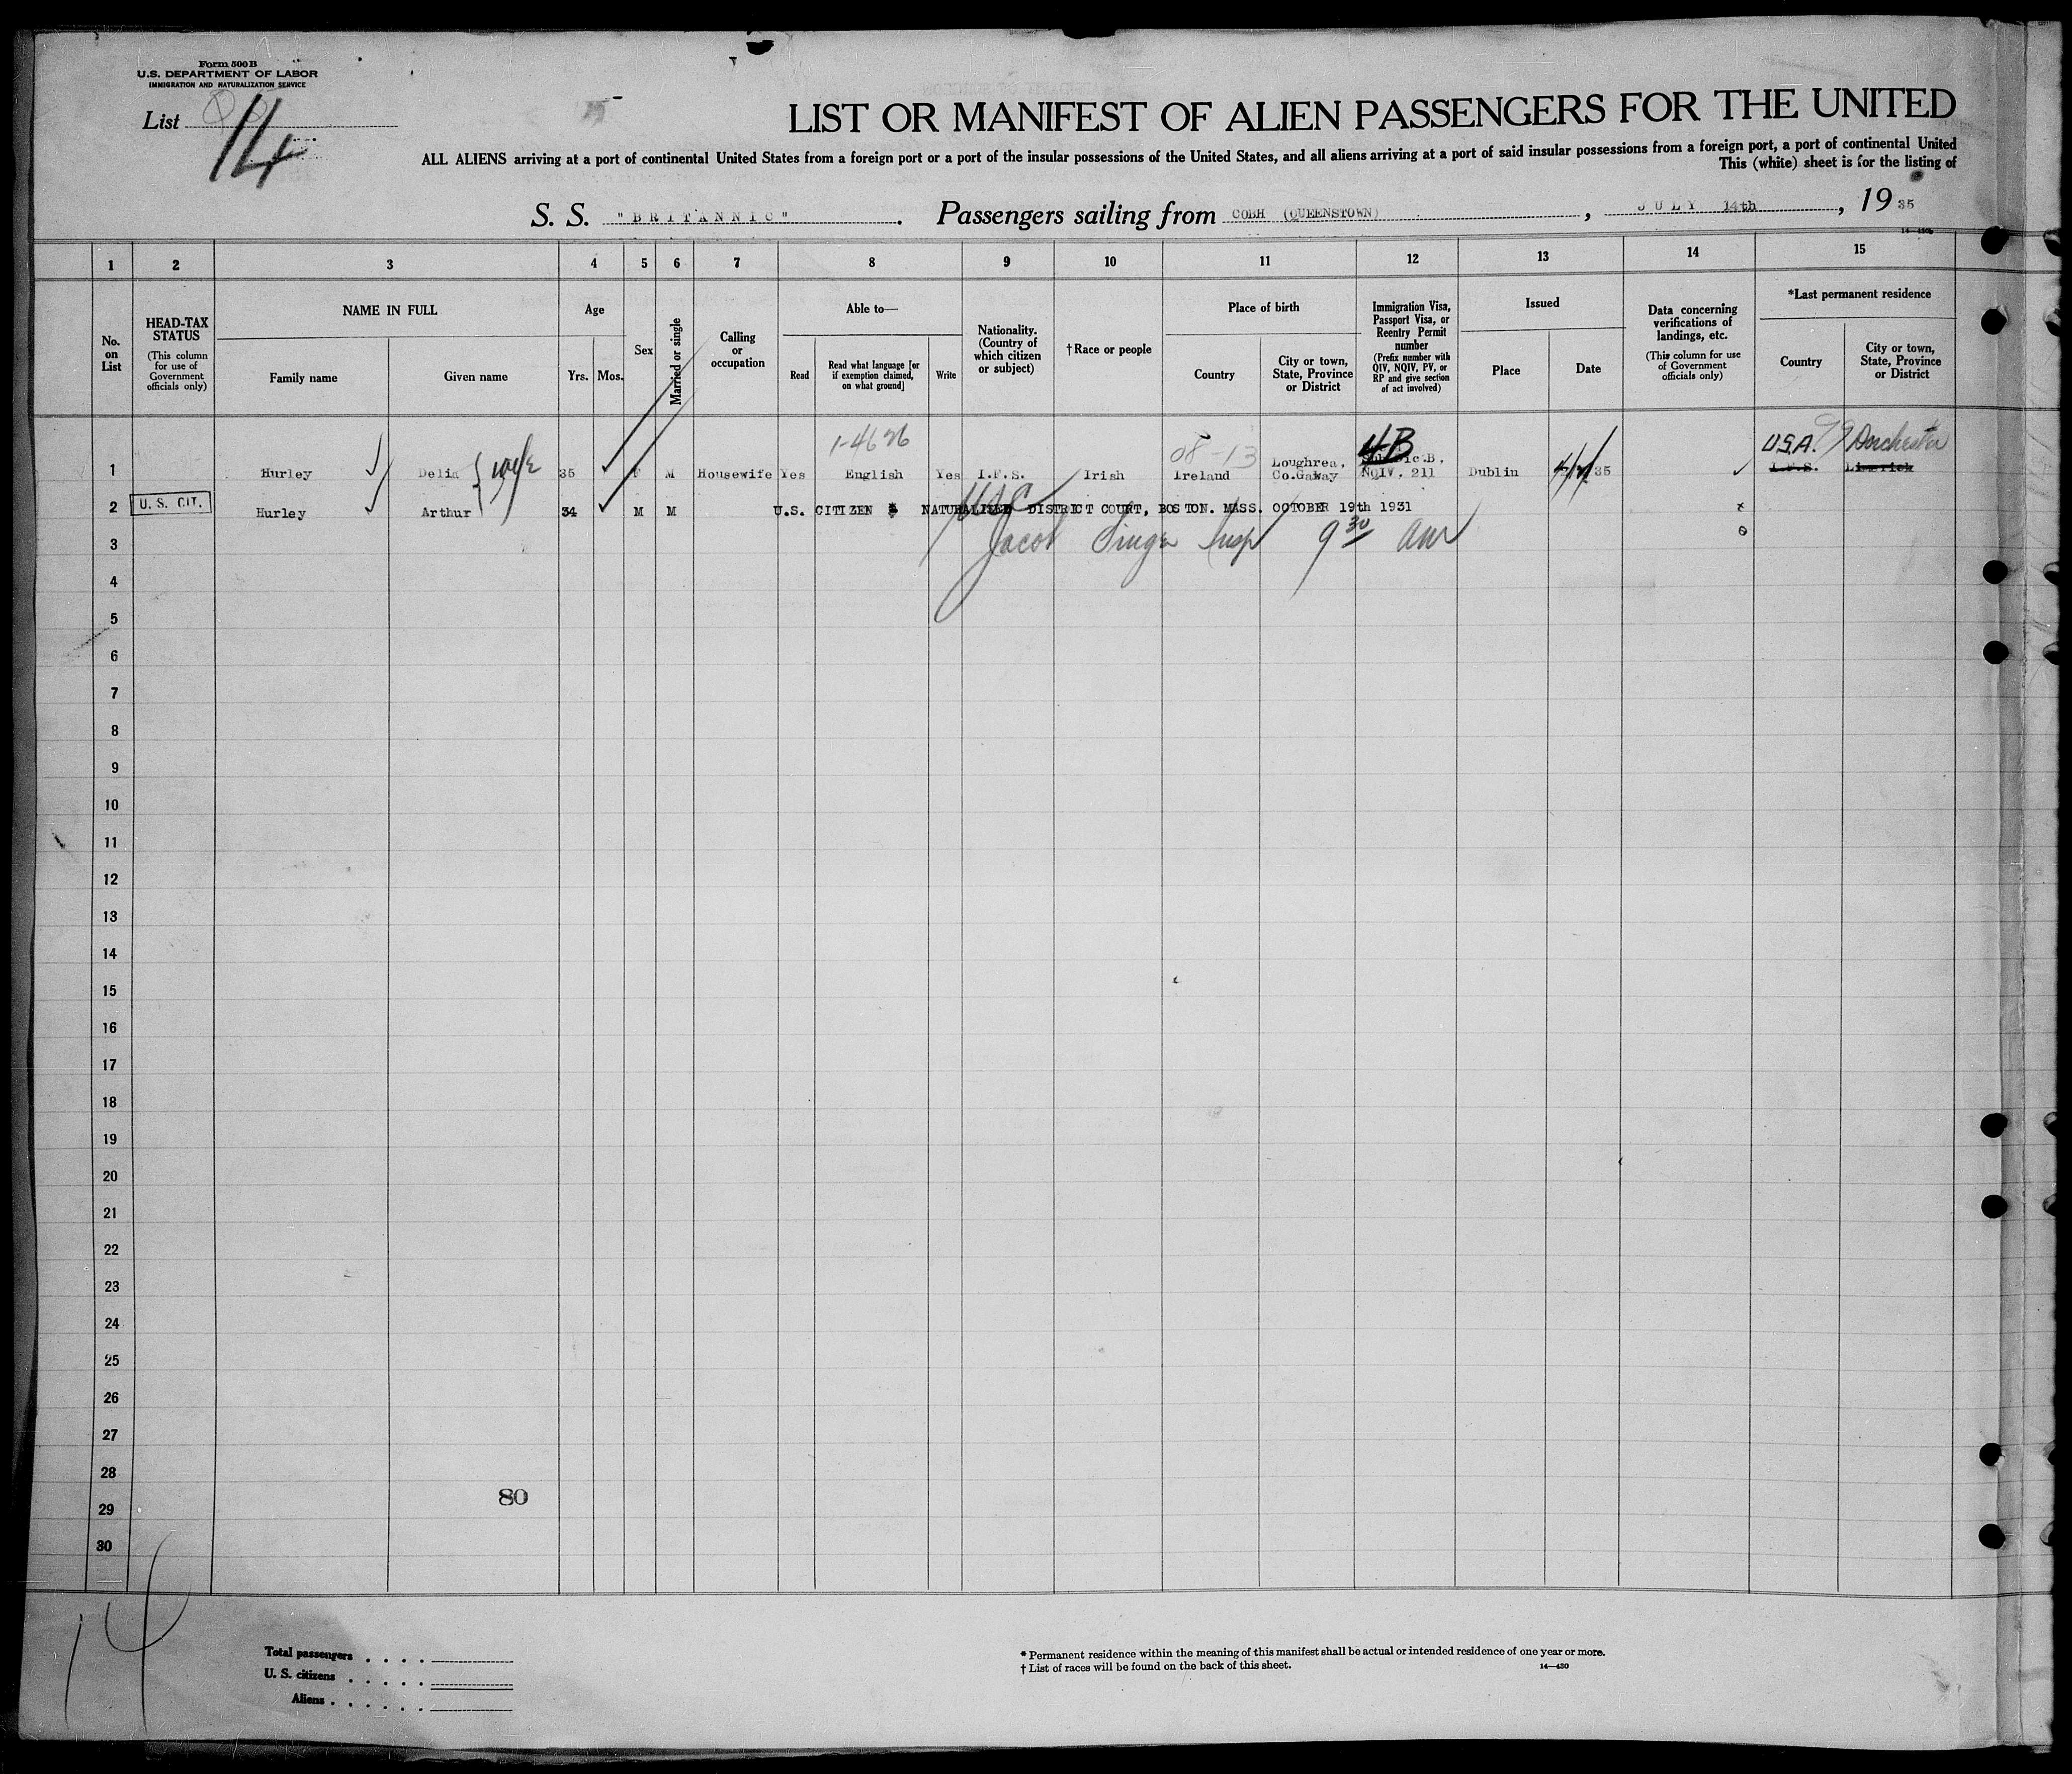 Form 500 B
U.S. DEPARTMENT OF LABOR
IMMIGRATION AND NATURALIZATION SERVICE
List 14
LIST OR MANIFEST OF ALIEN PASSENGERS FOR THE UNITED
ALL ALIENS arriving at a port of continental United States from a foreign port or a port of the insular possessions of the United States, and all aliens arriving at a port of said insular possessions from a foreign port, a port of continental United
This (white) sheet is for the listing of
S. S. "BRITANNIC". Passengers sailing from COBH (QUEENSTOWN), JULY 14th, 1935
1 2 3 4 5 6 7 8 9 10 11 12 13 14 15
No. on List
HEAD-TAX STATUS
(This column for use of Government officials only)
NAME IN FULL
Family name
Given name
Age
Yrs. Mos.
Sex
Married or single
Calling or occupation
Able to—
Read
Read what language [or if exemption claimed, on what ground]
Write
Nationality. (Country of which citizen or subject)
†Race or people
Place of birth
Country
City or town, State, Province or District
Immigration Visa, Passport Visa, or Reentry Permit number
(Prefix number with QIV, NQIV, PV, or RP and give section of act involved)
Issued
Place
Date
Data concerning verifications of landings, etc.
(This column for use of Government officials only)
*Last permanent residence
Country
City or town, State, Province or District
1-4626
08-13
4B
U.S.A. Dorchester
1 Hurley Delia wife 35 F M Housewife Yes English Yes I.F.S. Irish Ireland Loughrea, Co.Galway NQIV. 211 Dublin 35 I.F.S. Limerick
2 U. S. CIT. Hurley Arthur 34 M M U.S. CITIZEN NATURALIZED DISTRICT COURT, BOSTON. MASS. OCTOBER 19th 1931
USC
3 Jacob Singer Insp 9 30 am
4
5
6
7
8
9
10
11
12
13
14
15
16
17
18
19
20
21
22
23
24
25
26
27
28
80
29
30
14
Total passengers . . . .
U. S. citizens . . . . .
Aliens . . . . . .
* Permanent residence within the meaning of this manifest shall be actual or intended residence of one year or more.
† List of races will be found on the back of this sheet.
14—430